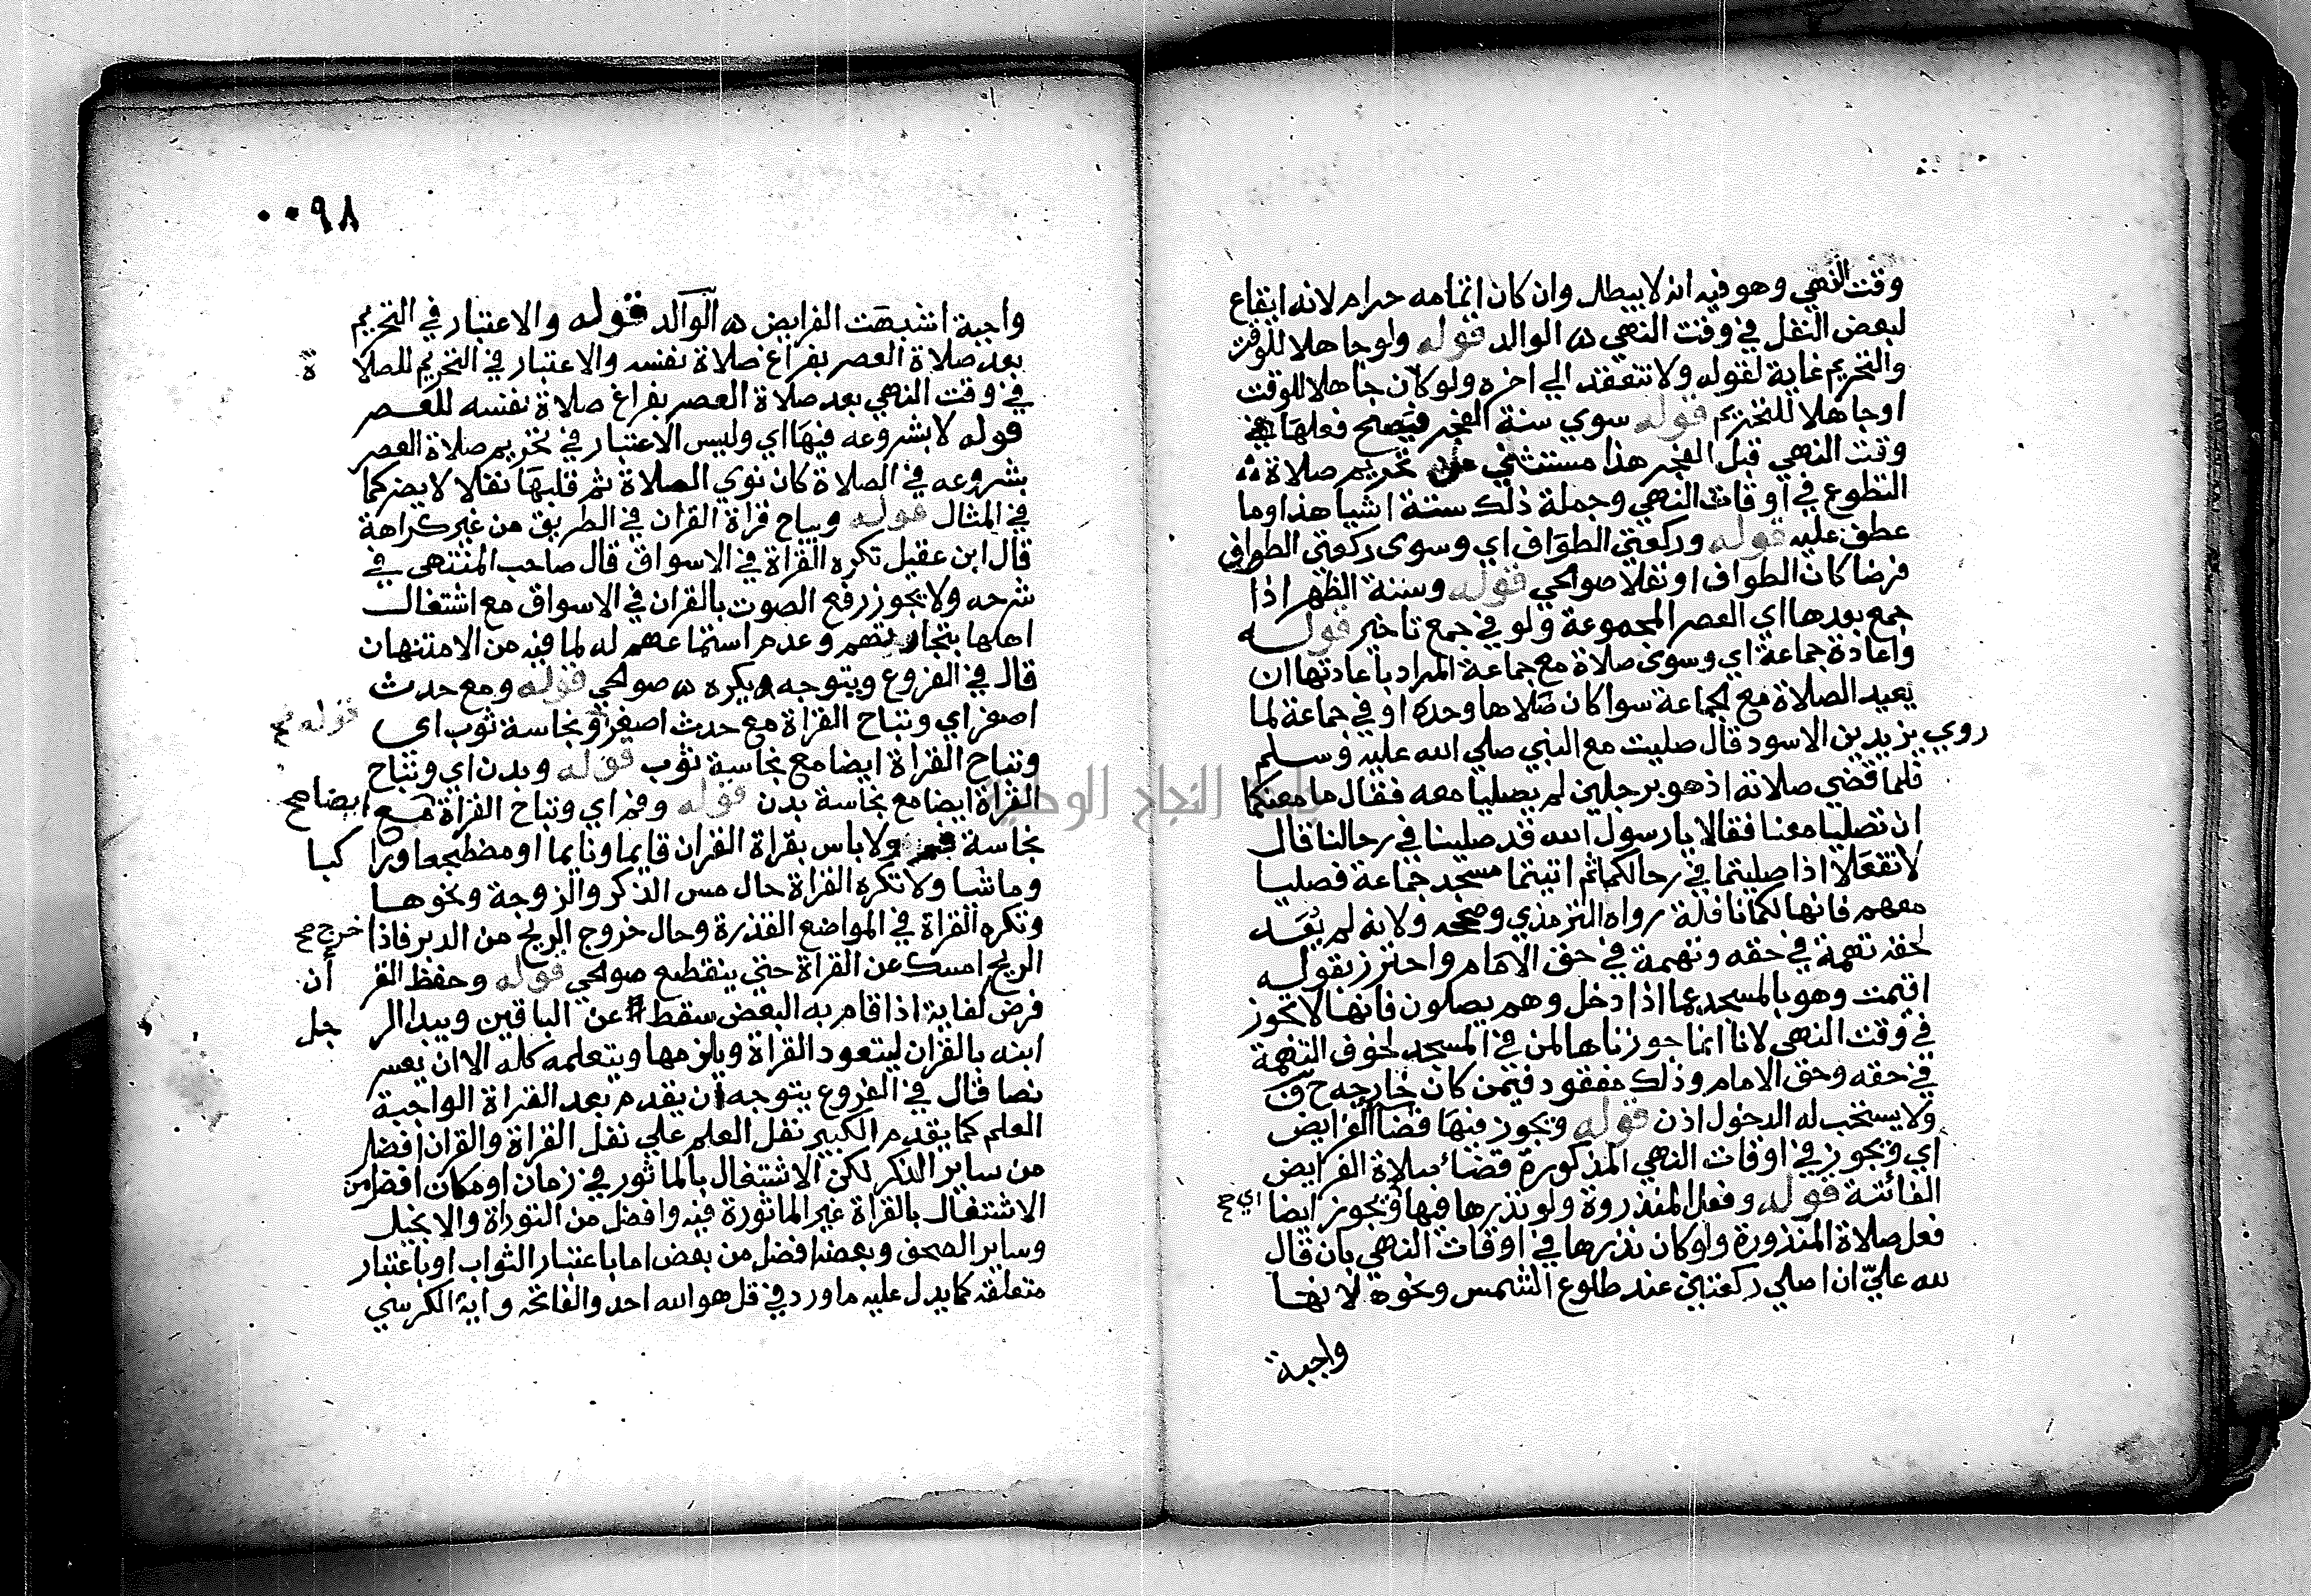 وقت النهي وهو فيه انه لا يبطل وان كان اتمامه حرام لانه ايقاع
لبعض النفل في وقت النهي ه الوالد قوله ولو جاهلا للوقت
والتحريم غاية لقوله ولا تنعقد الي اخره ولو كان جاهلا للوقت
او جاهلا للتحريم قوله سوي سنة الفجر فيصح فعلها في
وقت النهي قبل الفجر هذا مستثني من تحريم صلاة
التطوع في اوقات النهي وجملة ذلك ستة اشيا هذا وما
عطف عليه قوله وركعتي الطواف اي وسوى ركعتي الطواف
فرضا كان الطواف او نفلا صوالحي قوله وسنة الظهر اذا
جمع بعدها اي العصر المجموعة ولو في جمع تاخير قوله
واعادة جماعة اي وسوى صلاة مع جماعة المراد باعادتها ان
يعيد الصلاة مع الجماعة سوا كان صلاها وحده او في جماعة لما
روي يزيد بن الاسود قال صليت مع النبي صلي الله عليه وسلم
فلما قضي صلاته اذ هو برجلين لم يصليا معه فقال ما معنكما
ان تصليا معنا فقالا يا رسول الله قد صلينا في رحالنا قال
لا تفعلا اذا صليتما في رحالكما ثم اتيتما مسجد جماعة فصليا
معهم فانها لكما نافلة رواه الترمذي وصححه ولانه لم يعد
لحقه تهمة في حقه وتهمة في حق الامام واحترز بقوله
اقيمت وهو بالمسجد عما اذا دخل وهم يصلون فانها لا تجوز
في وقت النهي لانا انما جوزناها لمن في المسجد لخوف التهمة
في حقه وحق الامام وذلك مفقود فيمن كان خارجه ح ف
ولا يستحب له الدخول اذن قوله ويجوز فيها قضا الفرايض
اي ويجوز في اوقات النهي المذكورة قضاء صلاة الفرايض
الفائتة قوله وفعل المنذورة ولو نذرها فيها ويجوز ايضا اي صح
فعل صلاة المنذورة ولو كان نذرها في اوقات النهي بان قال
لله عليّ ان اصلي ركعتين عند طلوع الشمس ونحوه لانها
واجبة
٠٠٩٨
واجبة اشبهت الفرايض ه الوالد قوله والاعتبار في التحريم
بعد صلاة العصر بفراغ صلاة نفسه والاعتبار في التحريم للصلاة
في وقت النهي بعد صلاة العصر بفراغ صلاة نفسه للعصر
قوله لا بشروعه فيها اي وليس الاعتبار في تحريم صلاة العصر
بشروعه في الصلاة كان نوي الصلاة ثم قلبها نفلا لا يضر كما
في المثال قوله ويباح قراة القران في الطريق من غير كراهة
قال ابن عقيل تكره القراة في الاسواق قال صاحب المنتهى في
شرحه ولا يجوز رفع الصوت بالقران في الاسواق مع اشتغال
اهلها بتجارتهم وعدم استماعهم له لما فيه من الامتهان
قال في الفروع ويتوجه ويكره ه صوالحي قوله ومع حدث
اصغر اي وتباح القراة مع حدث اصغر ونجاسة ثوب اي قوله صح
وتباح القراة ايضا مع نجاسة ثوب قوله وبدن اي وتباح
القراة ايضا مع نجاسة بدن قوله وفم اي وتباح القراة مع ايضا صح
نجاسة فم ولا باس بقراة القران قايما ونايما او مضطجعا وراكبا
وماشيا ولا تكره القراة حال مس الذكر والزوجة ونحوها
وتكره القراة في المواضع القذرة وحال خروج الريح من الدبر فاذا خرج صح
الريح امسك عن القراة حتي ينقطع صوالحي قوله وحفظ القرأن
فرض كفاية اذا قام به البعض سقط عن الباقين ويبدا الرجل
ابنه بالقران ليتعود القراة ويلزمها ويتعلمه كله الا ان يعسر
نصا قال في الفروع يتوجه ان يقدم بعد القراة الواجبة
العلم كما يقدم الكبير نفل العلم علي نفل القراة والقران افضل
من ساير الذكر لكن الاشتغال بالماثور في زمان او مكان افضل من
الاشتغال بالقراة غير الماثورة فيه وافضل من التوراة والانجيل
وساير الصحف وبعضه افضل من بعض اما باعتبار الثواب او باعتبار
متعلقه كما يدل عليه ما ورد في قل هو الله احد والفاتحه واية الكرسي